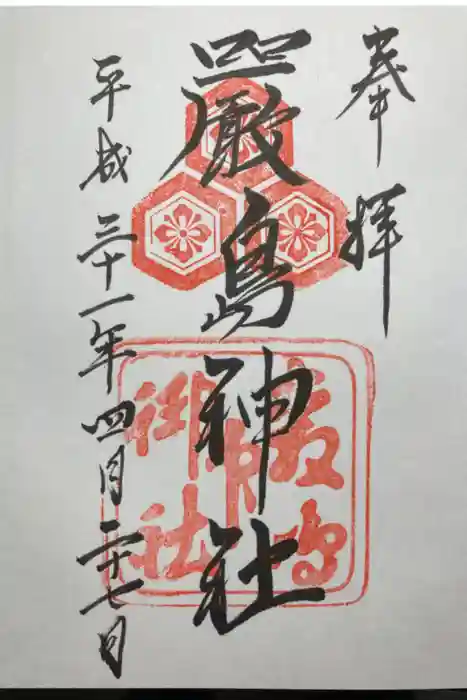 奉拝
嚴島神社
平成三十一年四月二十七日
嚴島
神
御社